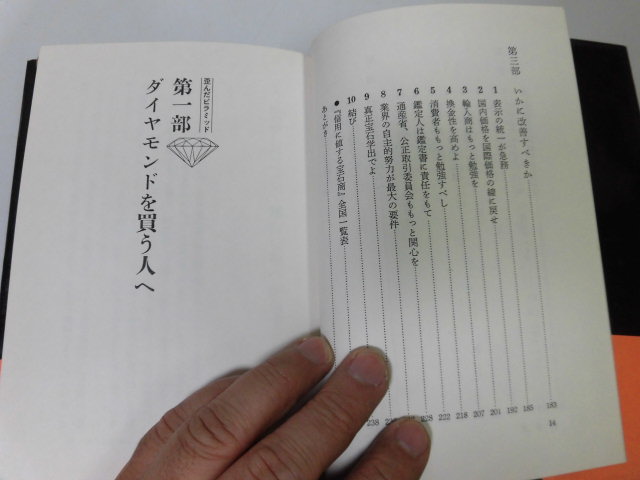 第三部　いかに改善すべきか 183
1　表示の統一が急務 185
2　国内価格を国際価格の線に戻せ 192
3　輸入商はもっと勉強を 201
4　換金性を高めよ 207
5　消費者ももっと勉強すべし 218
6　鑑定人は鑑定書に責任をもて 222
7　通産省、公正取引委員会ももっと関心を 228
8　業界の自主的努力が最大の要件
9　真正宝石学出でよ
10　結び 238
●『信用に値する宝石商』全国一覧表
あとがき
14
歪んだピラミッド
第一部
ダイヤモンドを買う人へ